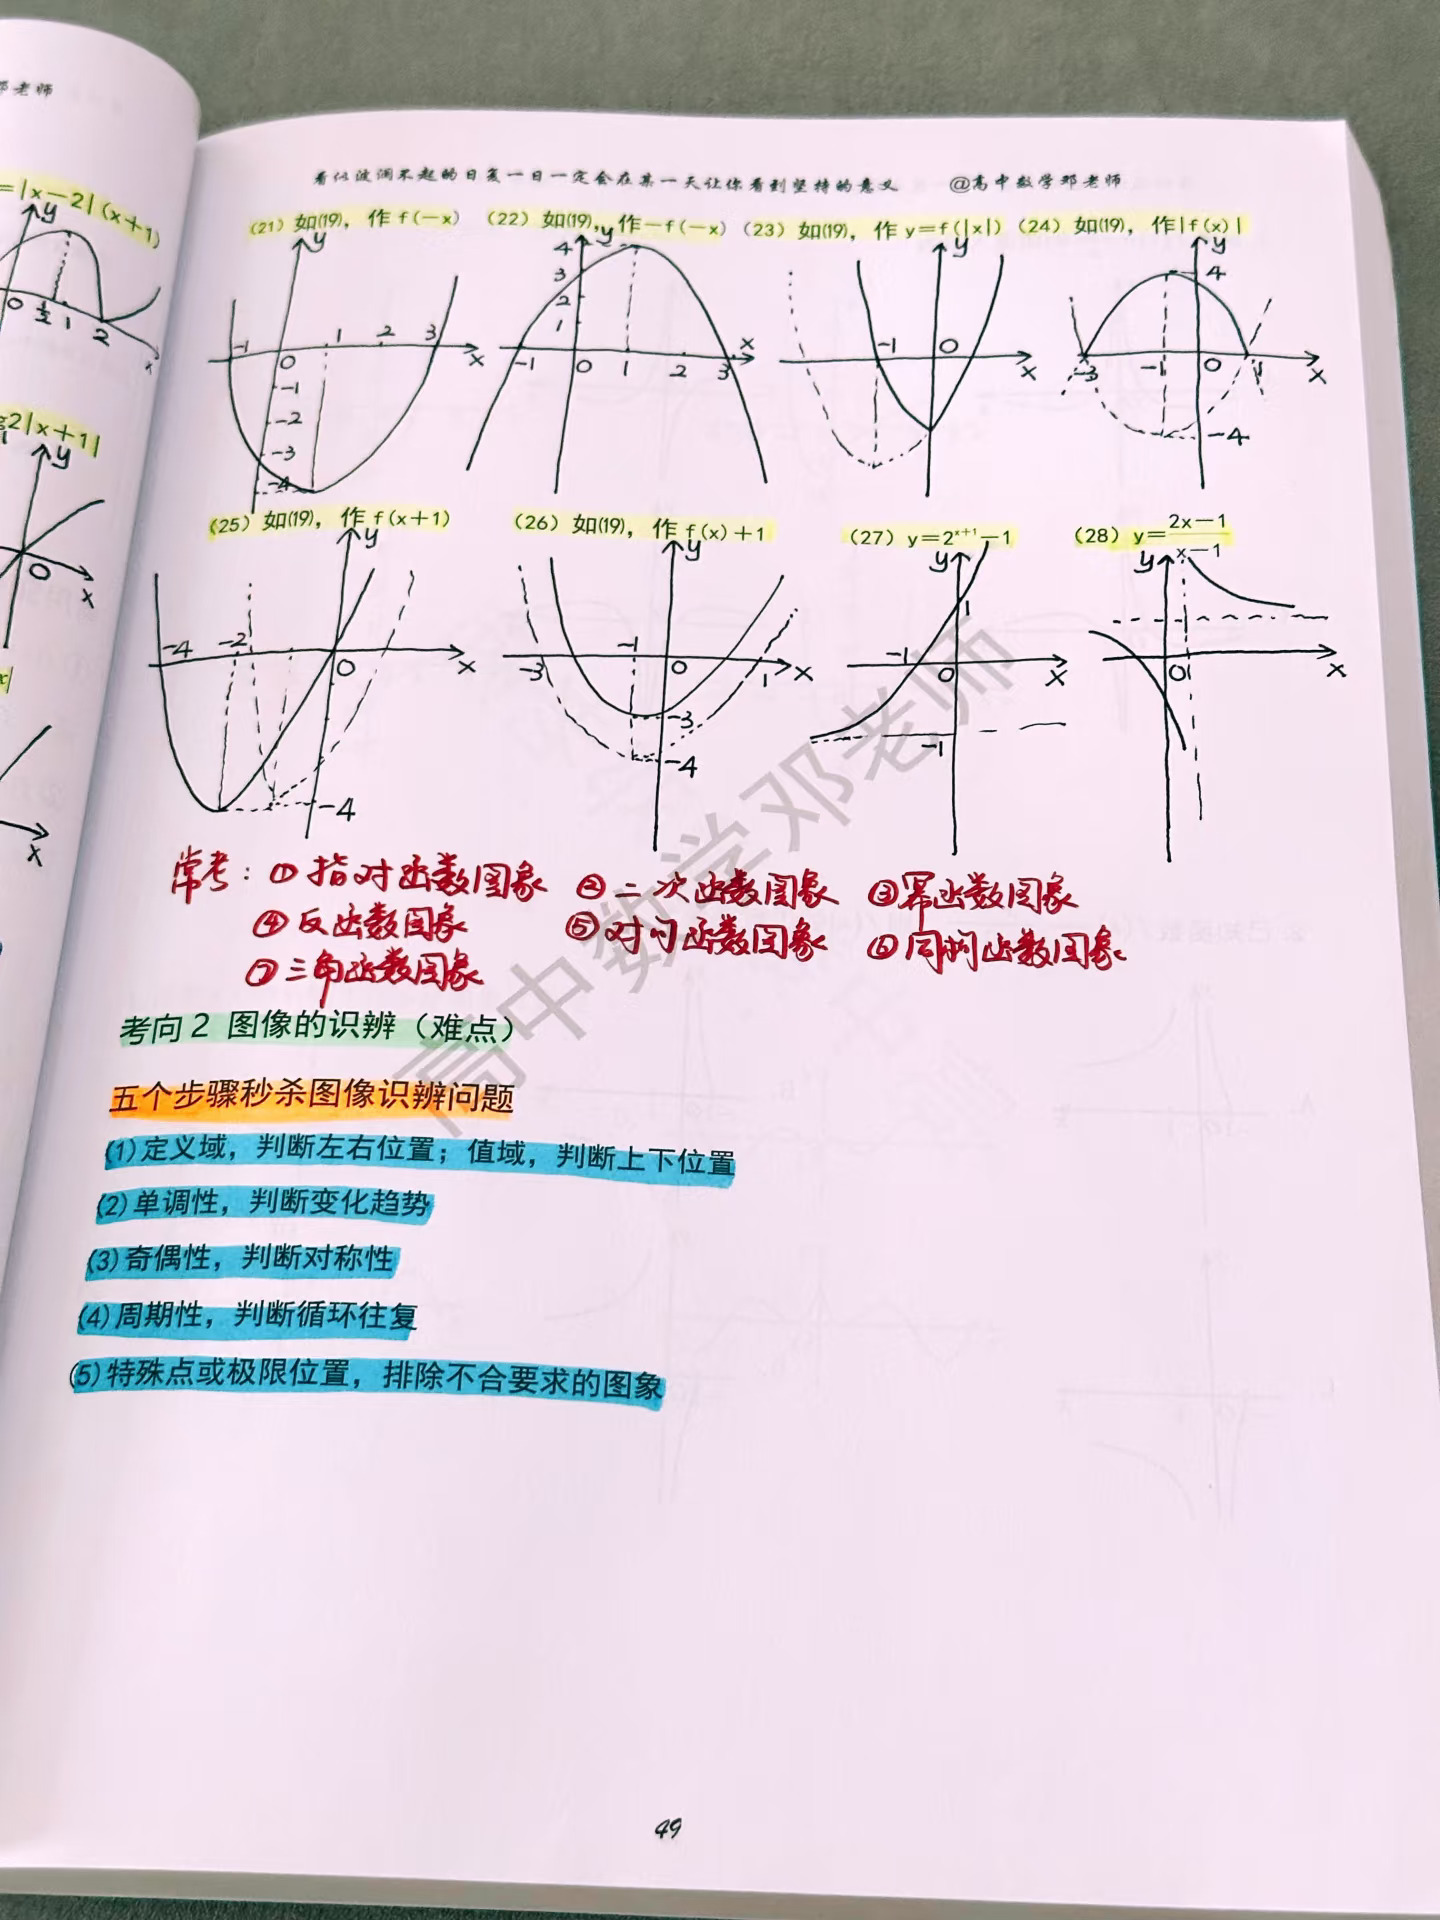 老师
看似波澜不起的日复一日一定会在某一天让你看到坚持的意义 @高中数学邓老师
=|x-2|(x+1)
y
0 1/2 1 2 x
(21)如(19),作f(-x) (22)如(19),作-f(-x) (23)如(19),作y=f(|x|) (24)如(19),作|f(x)|
y
-1 0 1 2 3 x
-1
-2
-3
-4
y
4
3
2
1
-1 0 1 2 3 x
y
-1 0 x
y
4
-3 -1 0 1 x
-4
2|x+1|
y
0 x
(25)如(19),作f(x+1) (26)如(19),作f(x)+1 (27)y=2^{x+1}-1 (28)y=\frac{2x-1}{x-1}
y
-4 -2 0 x
-4
y
-3 -1 0 1 x
-3
-4
y
1
-1 0 x
-1
y
0 1 x
x
常考:①指对函数图象 ②二次函数图象 ③幂函数图象
④反函数图象 ⑤对勾函数图象 ⑥同构函数图象
⑦三角函数图象
考向2 图像的识辨(难点)
五个步骤秒杀图像识辨问题
(1)定义域,判断左右位置;值域,判断上下位置
(2)单调性,判断变化趋势
(3)奇偶性,判断对称性
(4)周期性,判断循环往复
(5)特殊点或极限位置,排除不合要求的图象
高中数学邓老师
49